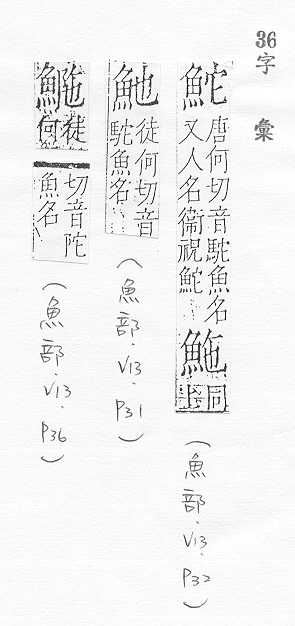 36
字彙
鮀
唐何切音駝魚名
又人名衞祝鮀
同
上
(魚部.V13.P32)
徒何切音
駝魚名
(魚部.V13.P31)
徒
何
切音陀
魚名
(魚部.V13.P36)